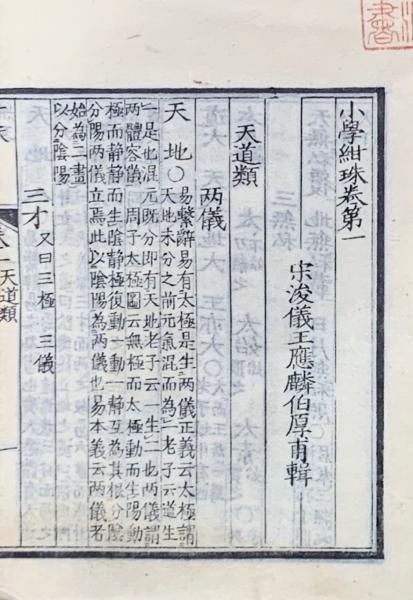 小學紺珠卷第一
宋浚儀王應麟伯厚甫輯
天道類
两儀
天 地〇
易繫辭易有太極是生两儀正義云太極謂
天地未分之前元氣混而為一老子云道生
一是也混元既分即有天地老子云一生二也两儀謂
两體容儀 周子太極圖云無極而太極動而生陽動
極而靜靜而生陰靜極復動一動一靜互為其根分陰
分陽两儀立焉此以陰陽為两儀也易本義云两儀者
始為一畫
以分陰陽
三才 又曰三極 三儀
卷一 天道類 一